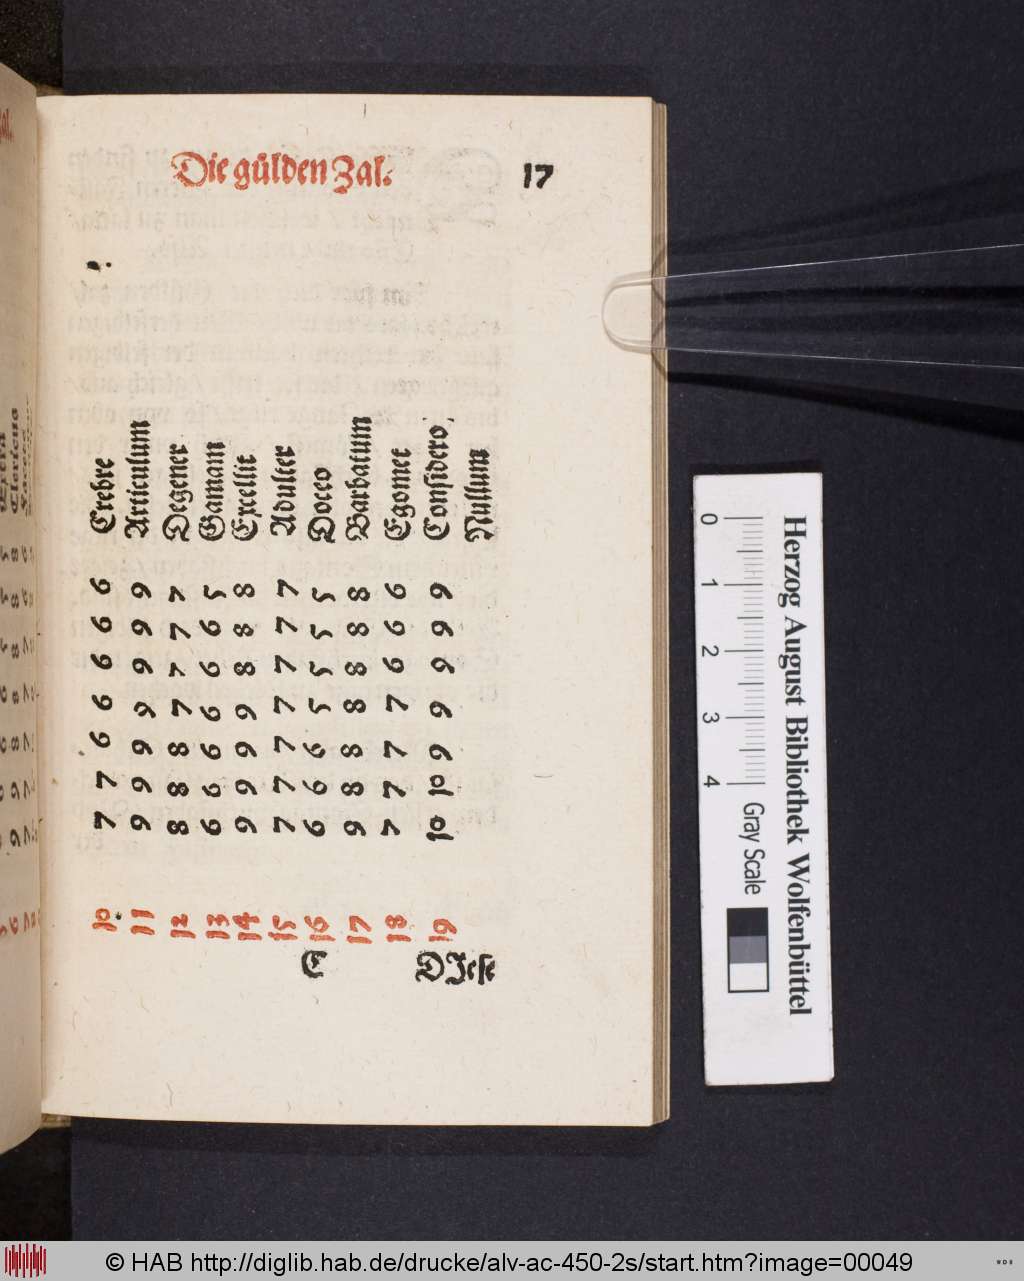 Die gülden Zal. 17
10 7 7 6 6 6 6 6 Crebre
11 9 9 9 9 9 9 9 Articulum
12 8 8 8 7 7 7 7 Degener
13 6 6 6 6 6 6 5 Gamam
14 9 9 9 9 8 8 8 Excellit
15 7 7 7 7 7 7 7 Adulter
16 6 6 6 5 5 5 5 Doceo
17 9 8 8 8 8 8 8 Barbarum
18 7 7 7 7 6 6 6 Egomet
19 10 10 9 9 9 9 9 Considero
Nullum
C
DJese
0 1 2 3 4
Gray Scale
Herzog August Bibliothek Wolfenbüttel
© HAB http://diglib.hab.de/drucke/alv-ac-450-2s/start.htm?image=00049